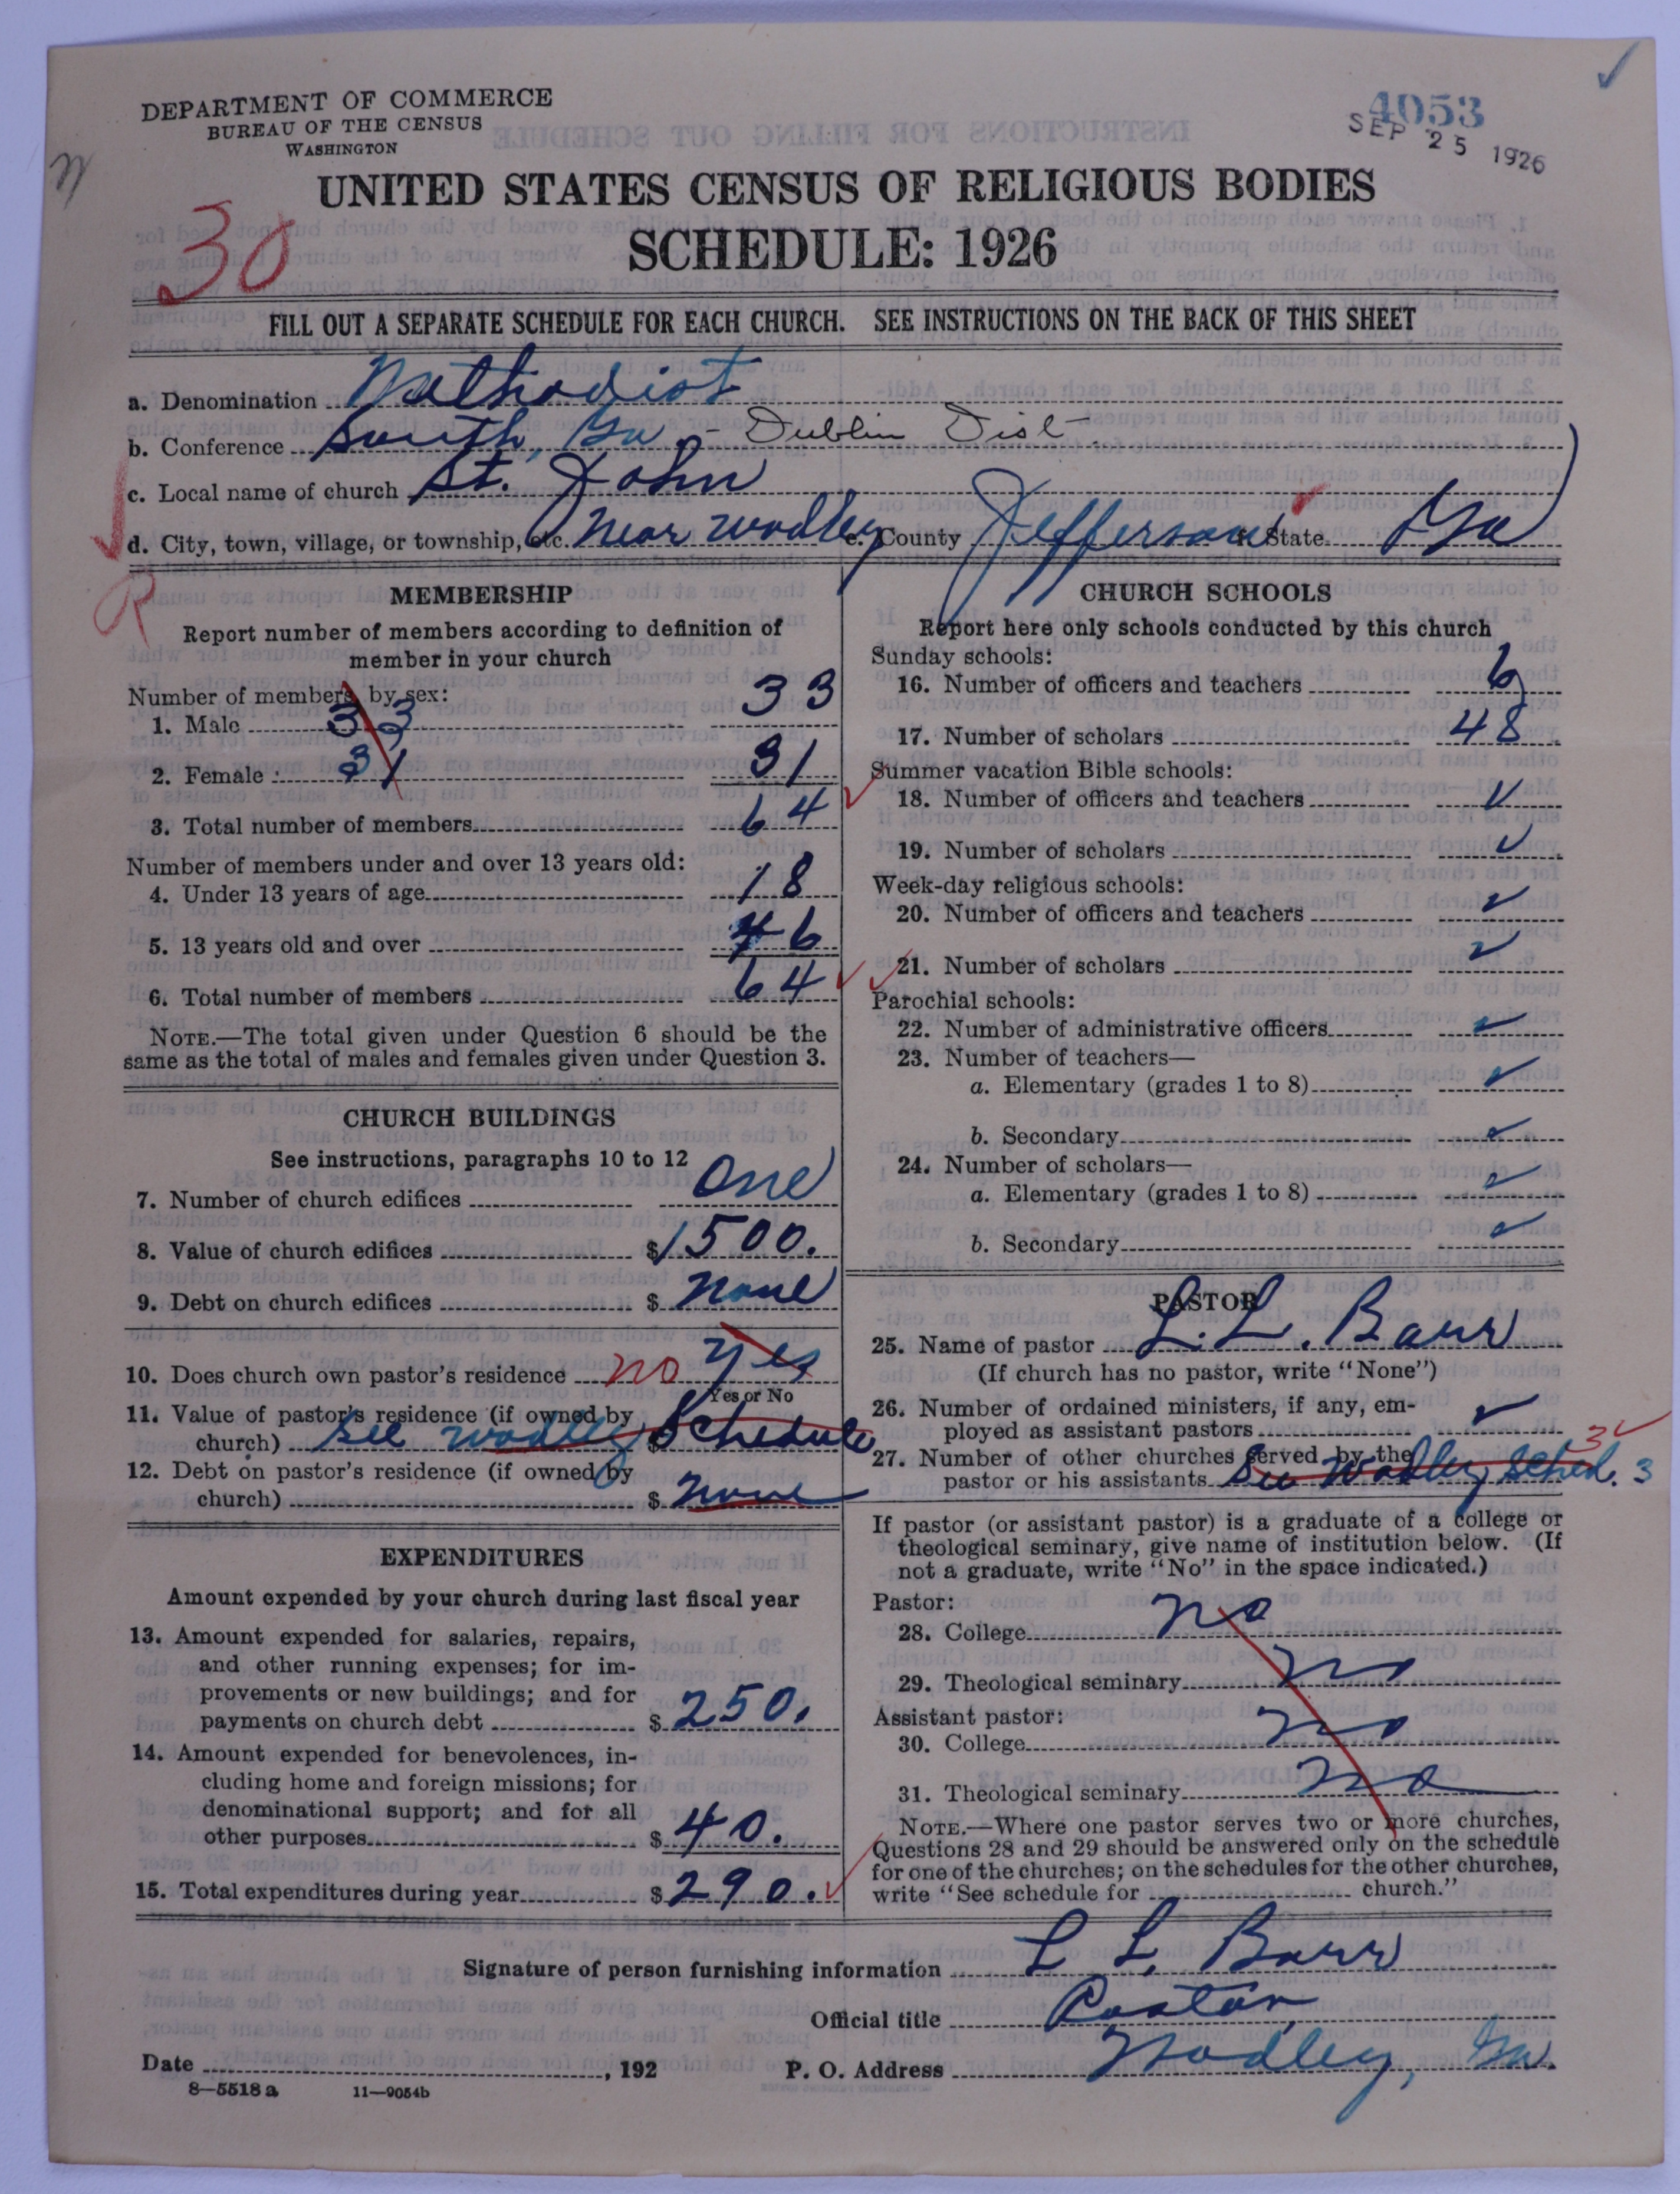 DEPARTMENT OF COMMERCE
BUREAU OF THE CENSUS
WASHINGTON
4053
SEP 25 1926
UNITED STATES CENSUS OF RELIGIOUS BODIES
SCHEDULE: 1926
30
FILL OUT A SEPARATE SCHEDULE FOR EACH CHURCH. SEE INSTRUCTIONS ON THE BACK OF THIS SHEET
a. Denomination Methodist
b. Conference South, Ga. - Dublin Dist.
c. Local name of church St. John
d. City, town, village, or township, etc. Near Wadley e. County Jefferson f. State Ga
MEMBERSHIP
Report number of members according to definition of
member in your church
Number of members by sex:
1. Male 33 33
2. Female 31 31
3. Total number of members 64
Number of members under and over 13 years old:
4. Under 13 years of age 18
5. 13 years old and over 46
6. Total number of members 64
NOTE.—The total given under Question 6 should be the
same as the total of males and females given under Question 3.
CHURCH BUILDINGS
See instructions, paragraphs 10 to 12
7. Number of church edifices One
8. Value of church edifices $1500.
9. Debt on church edifices $ None
10. Does church own pastor's residence no Yes
Yes or No
11. Value of pastor's residence (if owned by
church) See Wadley $ Schedule
12. Debt on pastor's residence (if owned by
church) $ None
EXPENDITURES
Amount expended by your church during last fiscal year
13. Amount expended for salaries, repairs,
and other running expenses; for im-
provements or new buildings; and for
payments on church debt $250.
14. Amount expended for benevolences, in-
cluding home and foreign missions; for
denominational support; and for all
other purposes $40.
15. Total expenditures during year $290.
CHURCH SCHOOLS
Report here only schools conducted by this church
Sunday schools:
16. Number of officers and teachers 6
17. Number of scholars 48
Summer vacation Bible schools:
18. Number of officers and teachers ✓
19. Number of scholars ✓
Week-day religious schools:
20. Number of officers and teachers ✓
21. Number of scholars ✓
Parochial schools:
22. Number of administrative officers ✓
23. Number of teachers—
a. Elementary (grades 1 to 8) ✓
b. Secondary ✓
24. Number of scholars—
a. Elementary (grades 1 to 8) ✓
b. Secondary ✓
PASTOR
25. Name of pastor L. L. Barr
(If church has no pastor, write "None")
26. Number of ordained ministers, if any, em-
ployed as assistant pastors ✓
27. Number of other churches served by the 3
pastor or his assistants See Wadley Sched. 3
If pastor (or assistant pastor) is a graduate of a college or
theological seminary, give name of institution below. (If
not a graduate, write "No" in the space indicated.)
Pastor:
28. College no
29. Theological seminary no
Assistant pastor:
30. College no
31. Theological seminary no
NOTE.—Where one pastor serves two or more churches,
Questions 28 and 29 should be answered only on the schedule
for one of the churches; on the schedules for the other churches,
write "See schedule for church."
Signature of person furnishing information L L. Barr
Official title Pastor
Date , 192 P. O. Address Wadley, Ga.
8—5518 a 11—9054b